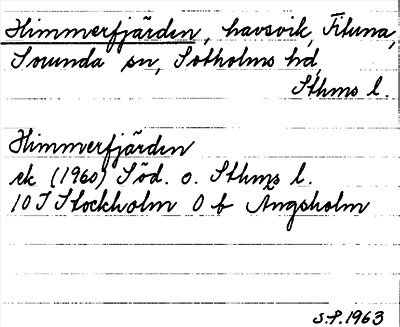 Himmerfjärden, havsvik, Fituna,
Sorunda sn, Sotholms hd,
Sthms l.
Himmerfjärden
ek (1960) Söd. o. Sthms l.
10I Stockholm 0 b Ängsholm
S.P. 1963